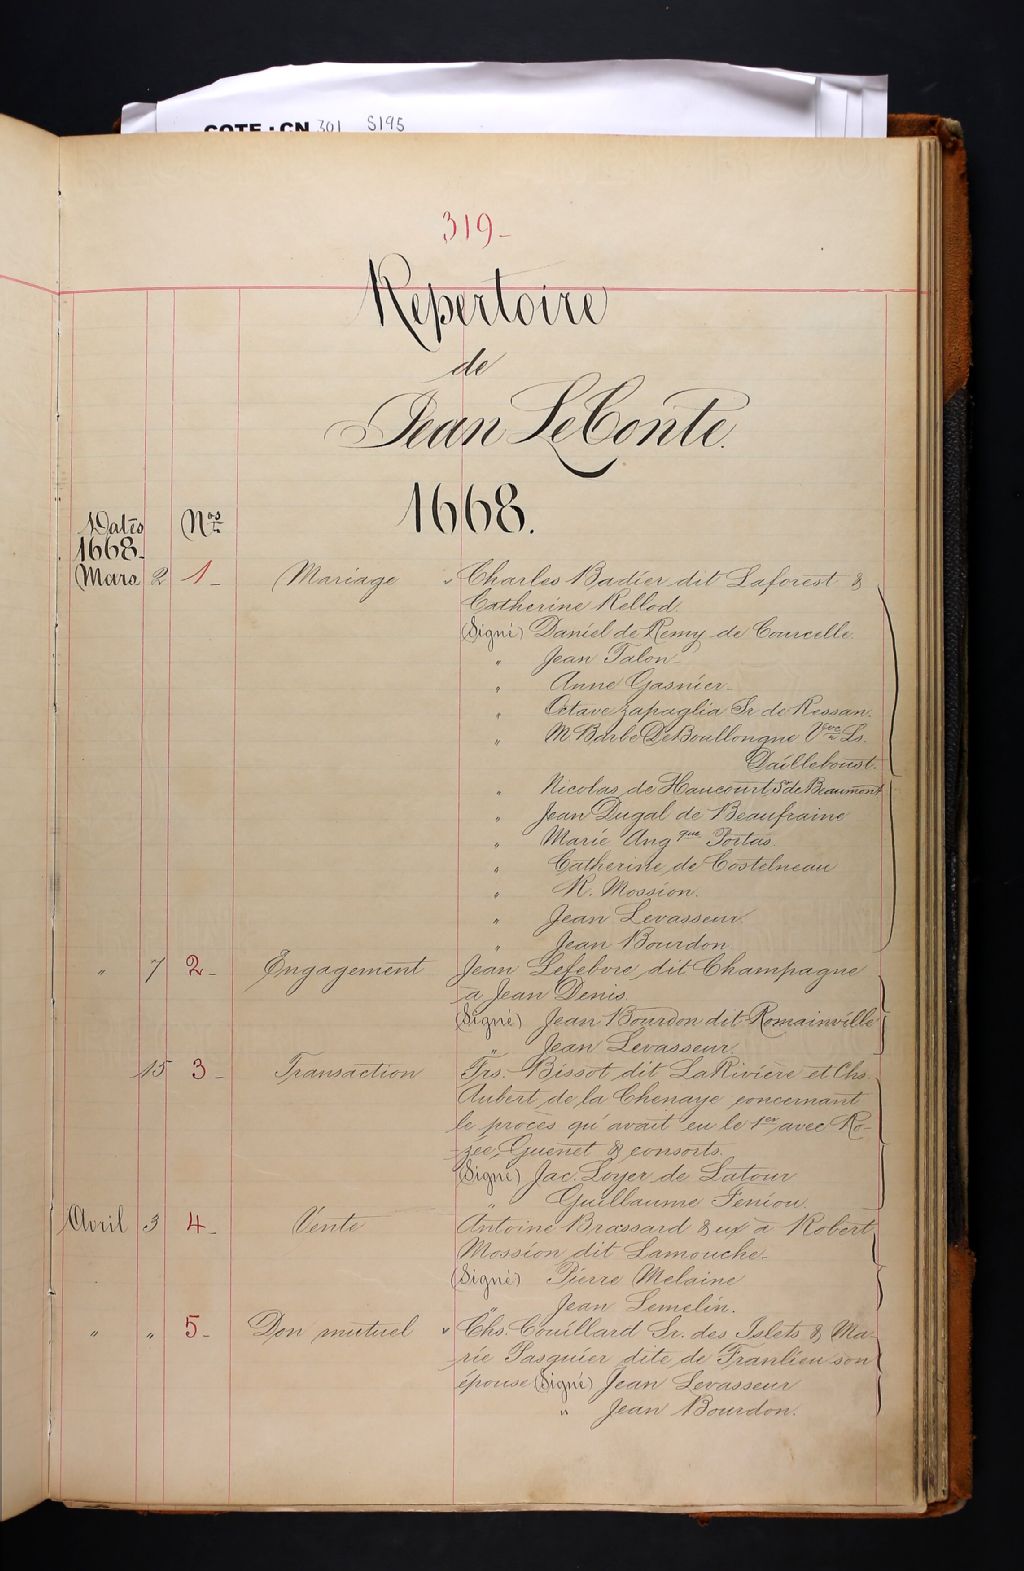 COTE : CN 301 S195
319-
Repertoire
de
Jean LeConte.
1668.
Dates Nos
1668.
Mars 2 1- Mariage v Charles Badier dit Laforest &
Catherine Rellod.
(Signé) Daniel de Remy de Courcelle.
" Jean Talon-
" Anne Gasnier-
" Octave Zapaglia Sr. de Ressan.
" M. Barbe DeBoullongne Vve Ls.
Dailleboust.
" Nicolas de Haucourt Sr de Beaumont
" Jean Dugal de Beaufraine
" Marie Angque Portas.
" Catherine de Costelneau
" R. Mossion.
" Jean Levasseur
" Jean Bourdon
" 7 2- Engagement Jean Lefebvre dit Champagne
à Jean Denis.
(Signé) Jean Bourdon dit Romainville
" Jean Levasseur.
15 3- Transaction Frs. Bissot dit LaRiviere et Chs.
Aubert de la Chenaye concernant
le procès qu'avait eu le 1er avec Ro-
zée, Guenet & consorts.
(Signé) Jac. Loyer de Latour
" Guillaume Feniou.
Avril 3 4- Vente Antoine Brassard & ux à Robert
Mossion dit Lamouche-
(Signé) Pierre Melaine
" Jean Lemelin.
" " 5- Don mutuel v Chs. Couillard Sr. des Islets & Ma-
rie Pasquier dite de Franlieu son
épouse (Signé) Jean Levasseur
" Jean Bourdon.